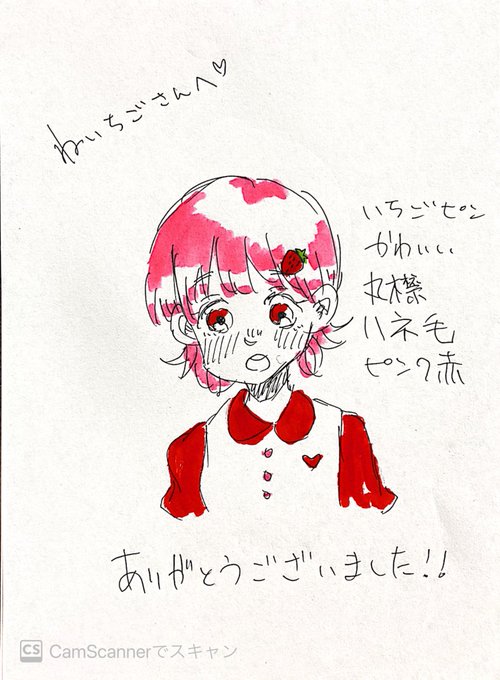 ねいちごさんへ♡
いちごピン
かわいい
丸襟
ハネ毛
ピンク赤
ありがとうございました!!
CS CamScannerでスキャン